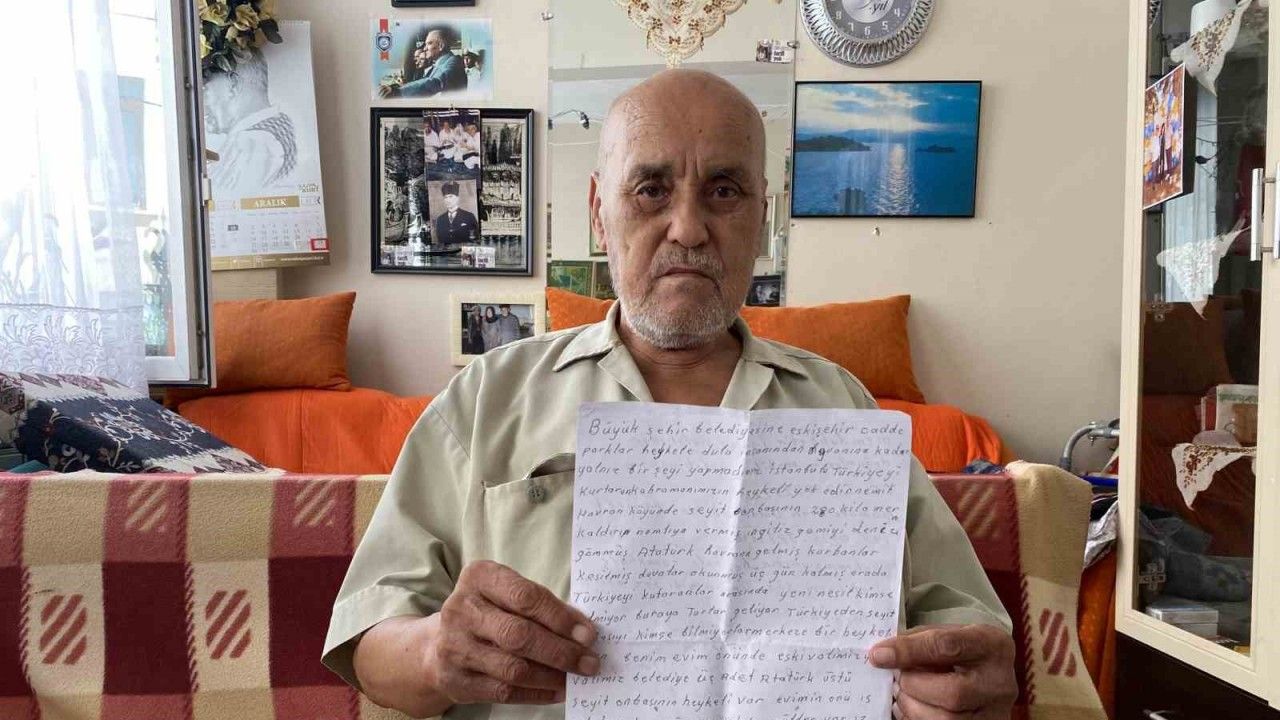 yıl
ARALIK
Büyük şehir belediyesine eskişehir cadde
parklar heykele dolu
yalnız bir şeyi yapmadınız istanbulu Türkiyeyi
Kurtarankahramanımızın heykeli yok edirnemit
Havran köyünde seyit onbaşının 280 kilo mer
kaldırıp namluya vermiş ingiliz gemiyi deniz
gömmüş Atatürk havrana gelmiş kurbanlar
Kesilmiş duvalar okunmuş üç gün kalmış orada
Türkiyeyi kutaranlar arasında yeni nesil kimse
buraya Turlar geliyor Türkiyeden seyit
kimse bilmiyorlar merkeze bir heykel
benim evim önünde eski valimiz
valimiz belediye üç adet Atatürk üstü
Seyit onbaşının heykeli var evimin önü is